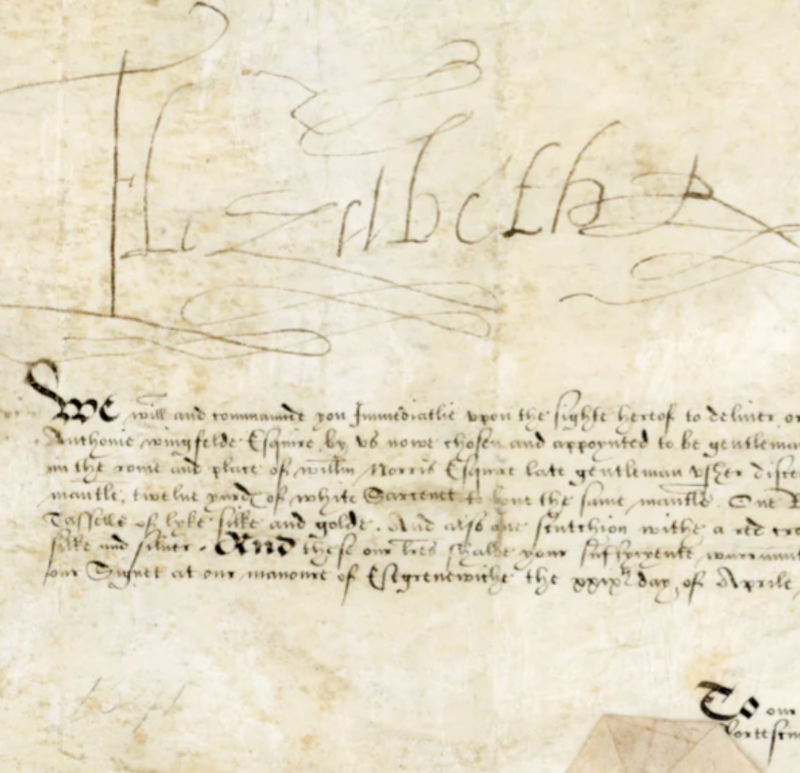 Elizabeth R
We will and commaunde you Immediatlie vpon the sighte hereof to deliuer or
Anthonie wingfelde Esquire by vs nowe chosen and appoynted to be gentleman
in the rome and place of willm Norris Esquire late gentleman vsher
mantle, twelue yard of white Sarcenet to lyne the same mantle. One
Tasselles of lyke silke and golde. And also one scutchion withe a red cro
silke and siluer. And these our lres shalbe your sufficyente warraunt
our Signet at our manoure of Estgrenewiche the xxixth day of Aprile
To our